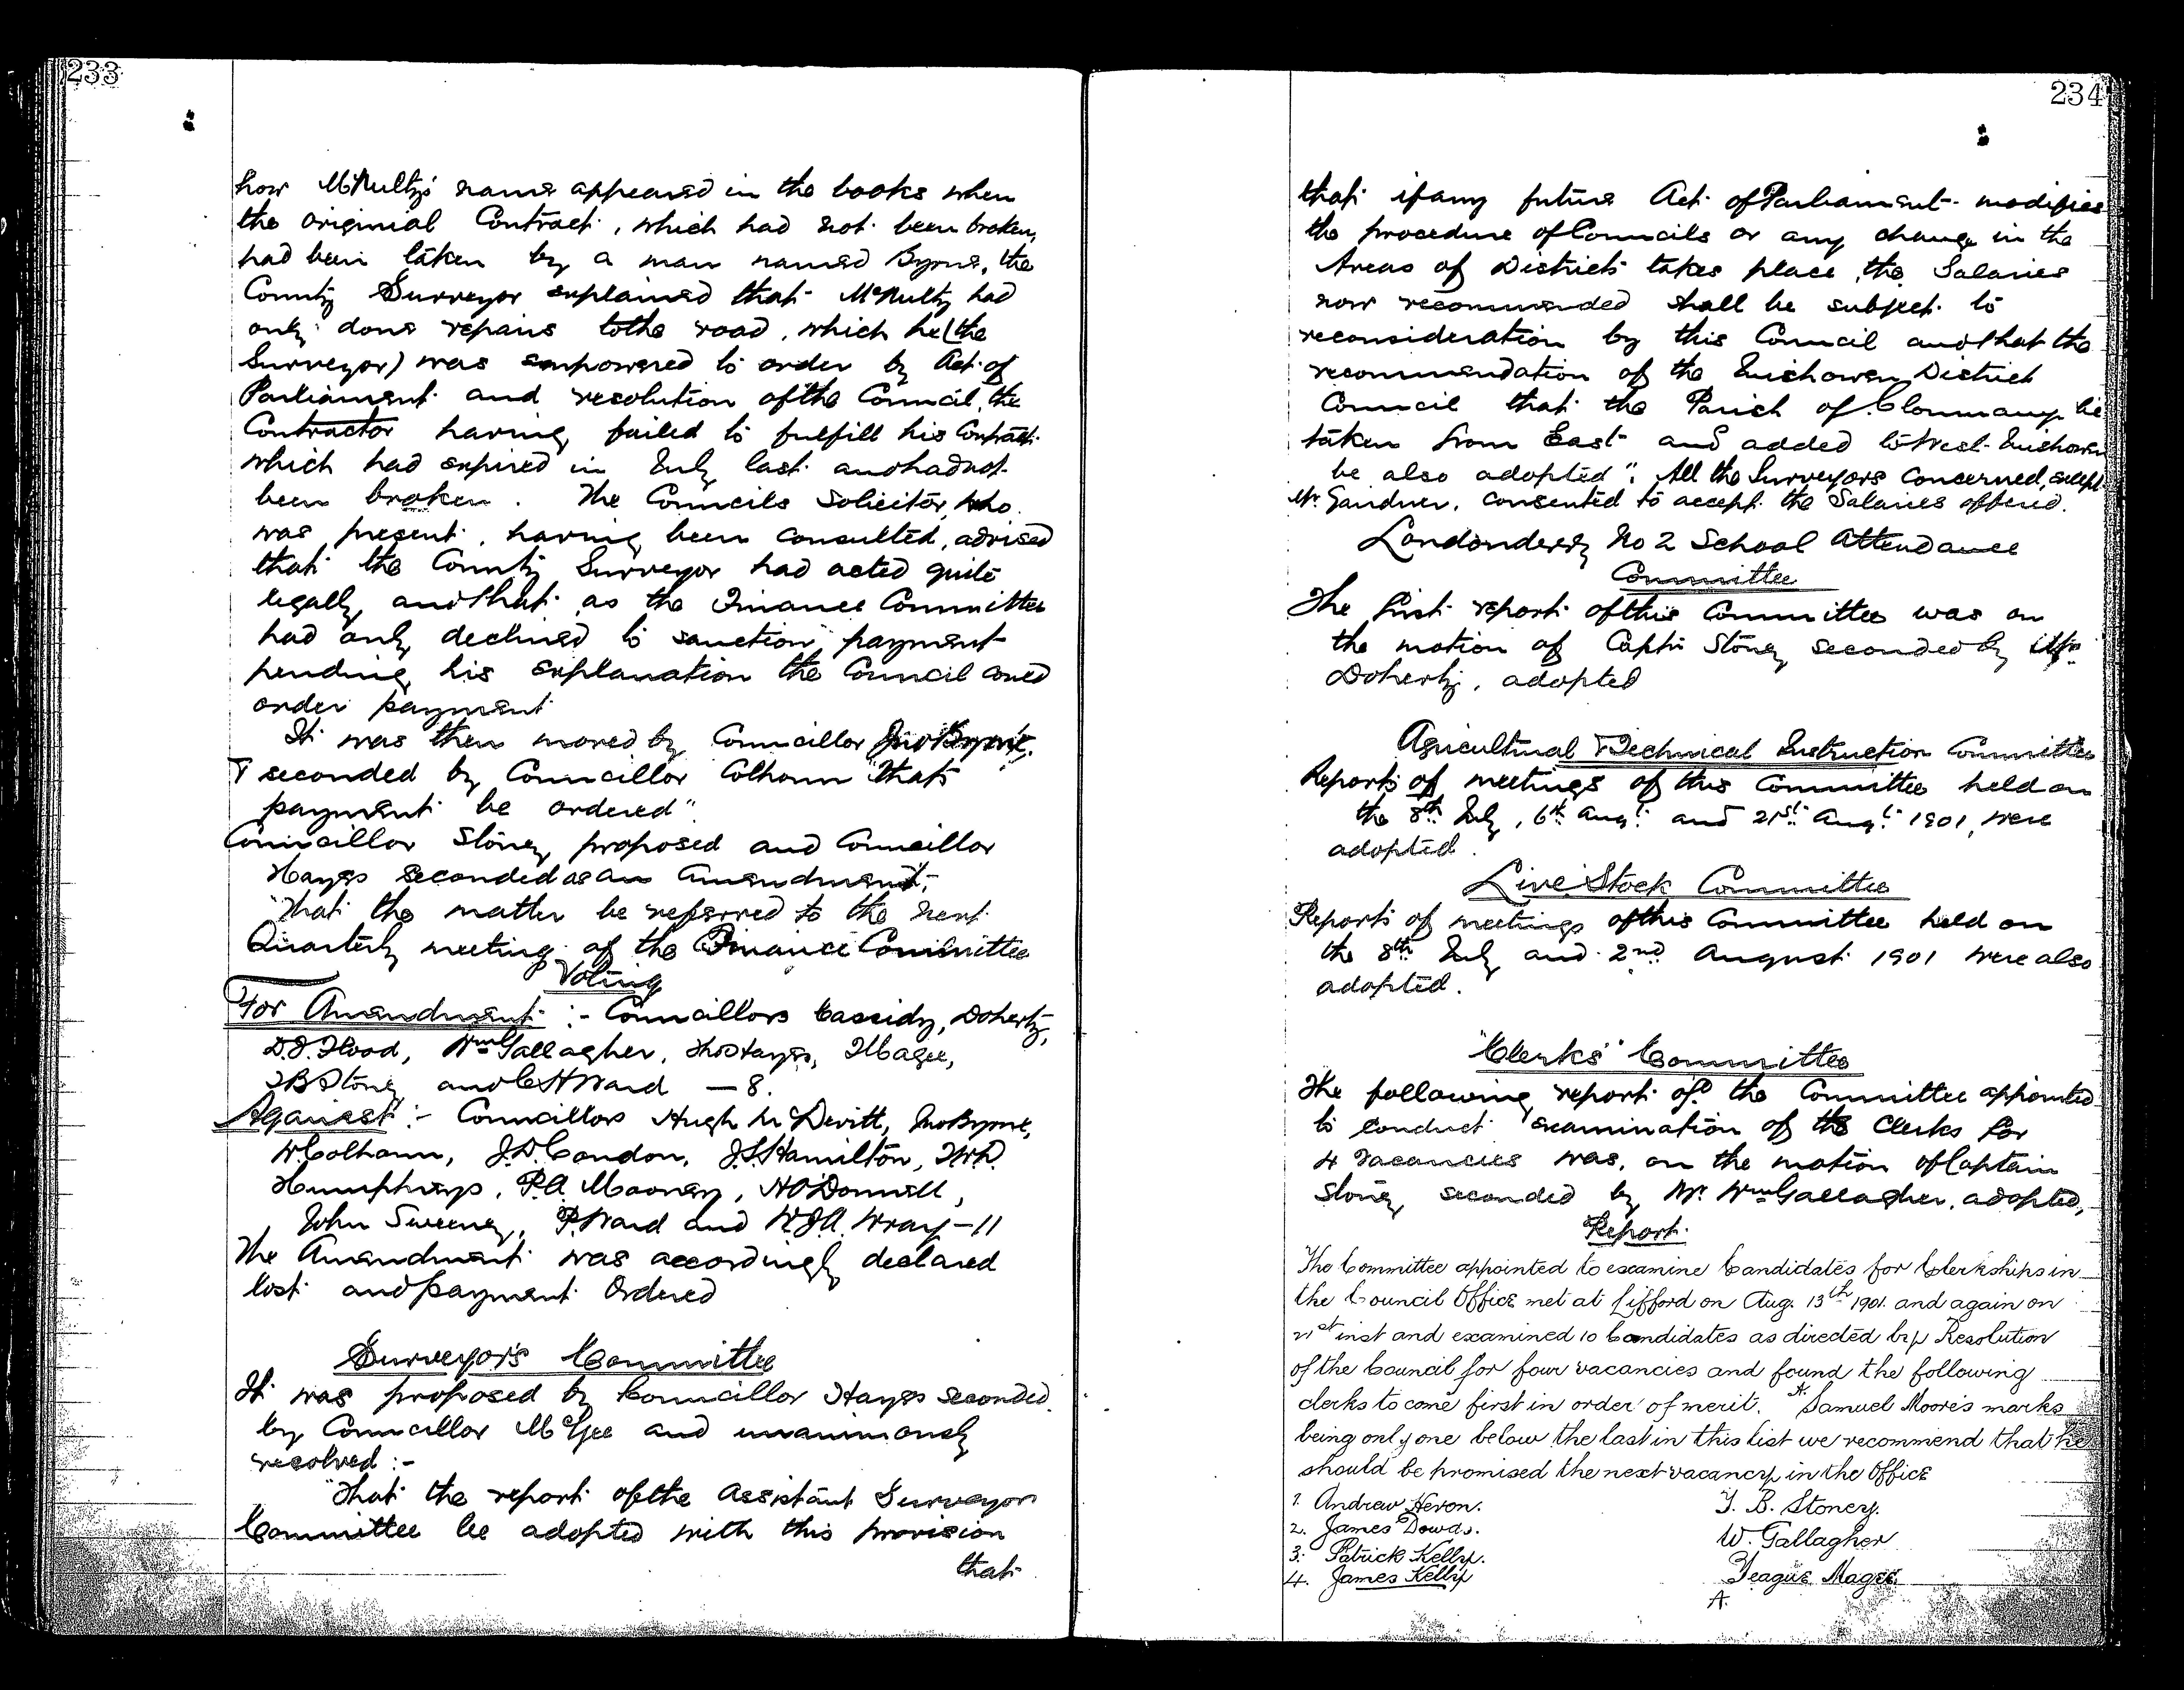 233
how McNulty's name appeared in the books when
the original Contract, which had not been broken,
had been taken by a man named Byrne, the
County Surveyor explained that McNulty had
only done repairs to the road, which he (the
Surveyor) was empowered to order by Act of
Parliament and resolution of the Council, the
Contractor having failed to fulfill his Contract
which had expired in July last and had not
been broken. The Councils Solicitor, who
was present, having been consulted, advised
that the County Surveyor had acted quite
legally, and that as the Finance Committee
had only declined to sanction payment
pending his explanation the Council could
order payment
It was then moved by Councillor Jno Byrne,
& seconded by Councillor Colhoun "that
payment be ordered".
Councillor Stoney proposed and Councillor
Hayes seconded as an Amendment,
"That the matter be referred to the next
Quarterly meeting of the Finance Committee
Voting
For Amendment :- Councillors Cassidy, Doherty,
D.J. Flood, Wm Gallagher, Thos Hayes, T Magee,
T B Stoney and C H Ward — 8.
Against :- Councillors Hugh McDevitt, Jno Byrne,
W Colhoun, J.D. Condon, J.S. Hamilton, T W D.
Humphreys, P.A. Mooney, H O'Donnell,
John Sweeney, P Ward and W.J.A. Wray — 11
The Amendment was accordingly declared
lost and payment Ordered
Surveyors Committee
It was proposed by Councillor Hayes seconded
by Councillor McGee and unanimously
resolved :-
"That the report of the Assistant Surveyor
Committee be adopted with this provision
that
234
that if any future Act of Parliament modifies
the procedure of Councils or any change in the
Areas of Districts takes place, the Salaries
now recommended shall be subject to
reconsideration by this Council and that the
recommendation of the Inishowen District
Council that the Parish of Clonmany be
taken from East and added to West Inishowen
be also adopted". All the Surveyors concerned, except
Mr Gardner, consented to accept the Salaries offered.
Londonderry No 2 School Attendance
Committee
The first report of this Committee was on
the motion of Captn Stoney seconded by Mr
Doherty, adopted
Agricultural & Technical Instruction Committee
Reports of meetings of this Committee held on
the 8th July, 6th Augt and 21st Augt 1901, were
adopted.
Live Stock Committee
Reports of meetings of this Committee held on
the 8th July and 2nd August 1901 were also
adopted.
"Clerks" Committee
The following report of the Committee appointed
to conduct examination of the Clerks for
4 vacancies was, on the motion of Captain
Stoney seconded by Mr Wm Gallagher, adopted,
Report
The Committee appointed to examine Candidates for Clerkships in
the Council Office met at Lifford on Aug. 13th 1901. and again on
21st inst and examined 10 Candidates as directed by Resolution
of the Council for four vacancies and found the following
clerks to come first in order of merit. A Samuel Moore's marks
being only one below the last in this list we recommend that he
should be promised the next vacancy in the Office
1. Andrew Heron. T. B. Stoney.
2. James Dowds. W. Gallagher
3. Patrick Kelly. Teague Magee
4. James Kelly
A.